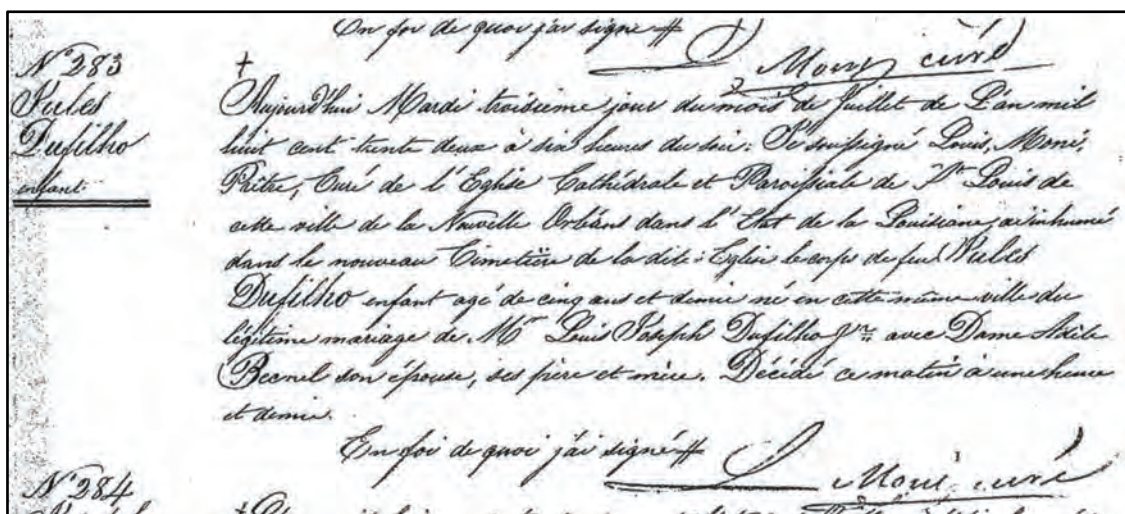 En foi de quoi j'ai signé #
L Moni curé
N° 283
Jules
Dufilho
enfant
+
Aujourd'hui Mardi troisième jour du mois de Juillet de L'an mil
huit cent trente deux à six heures du soir: Je soussigné Louis, Moni,
Prêtre, Curé de l'Eglise Cathédrale et Paroissiale de St. Louis de
cette ville de la Nouvelle Orléans dans l'Etat de la Louisiane, ai inhumé
dans le nouveau Cimetière de la dite Eglise le corps de feu Jules
Dufilho enfant agé de cinq ans et demie né en cette même ville du
légitime mariage de Mr Louis Joseph Dufilho Jnr avec Dame
Becnel son épouse, ses père et mère. Décédé ce matin à une heure
et demie.
En foi de quoi j'ai signé #
L Moni curé
N° 284